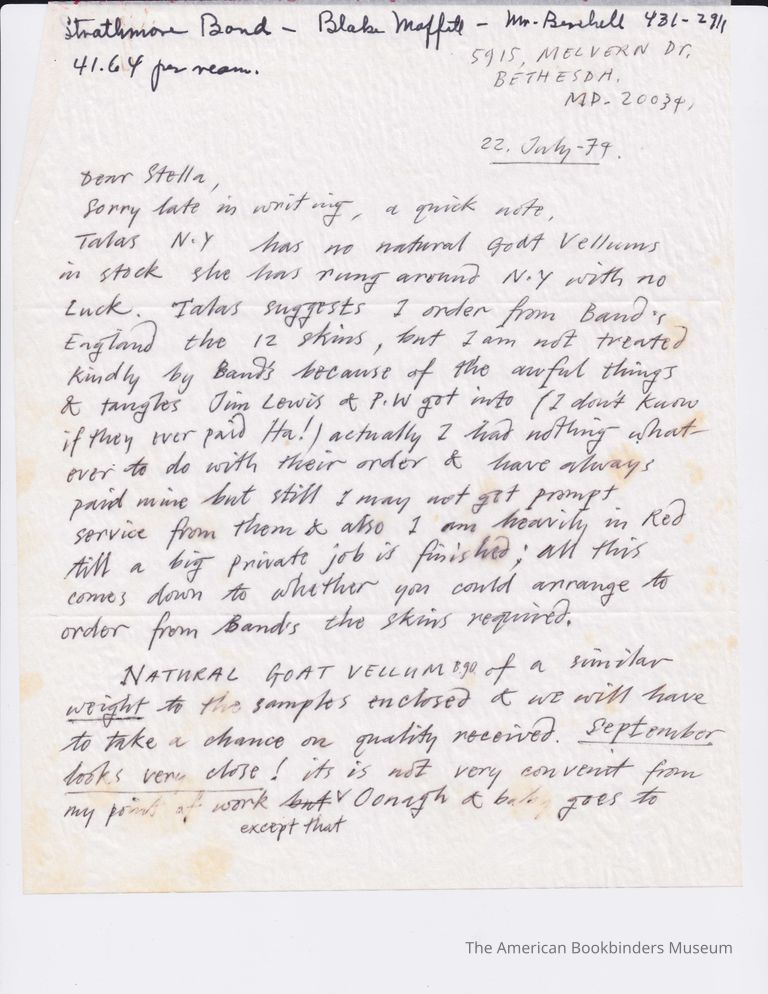 Strathmore Bond - Blake Moffitt - Mr. 431-2911
41.64 per ream.
5915, MELVERN Dr,
BETHESDA.
MD- 20034,
22. July-74.
Dear Stella,
Sorry late in writing, a quick note,
Talas N.Y has no natural Goat Vellums
in stock she has rung around N.Y with no
Luck. Talas suggests I order from Band's
England the 12 skins, but I am not treated
kindly by Band's because of the awful things
& tangles Jim Lewis & P.W got into (I don't know
if they ever paid Ha!) actually I had nothing what-
ever to do with their order & have always
paid mine but still I may not get prompt
service from them & also I am heavily in Red
till a big private job is finished; all this
comes down to whether you could arrange to
order from Band's the skins required.
NATURAL GOAT VELLUM of a similar
weight to the samples enclosed & we will have
to take a chance on quality received. September
looks very close! its is not very convenit from
my point of work but Oonagh & baby goes to
except that
The American Bookbinders Museum